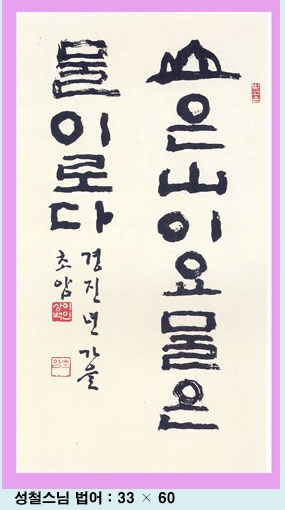 山은山이요물은
물이로다
경진년 가을
초암
성철스님 법어 : 33 × 60